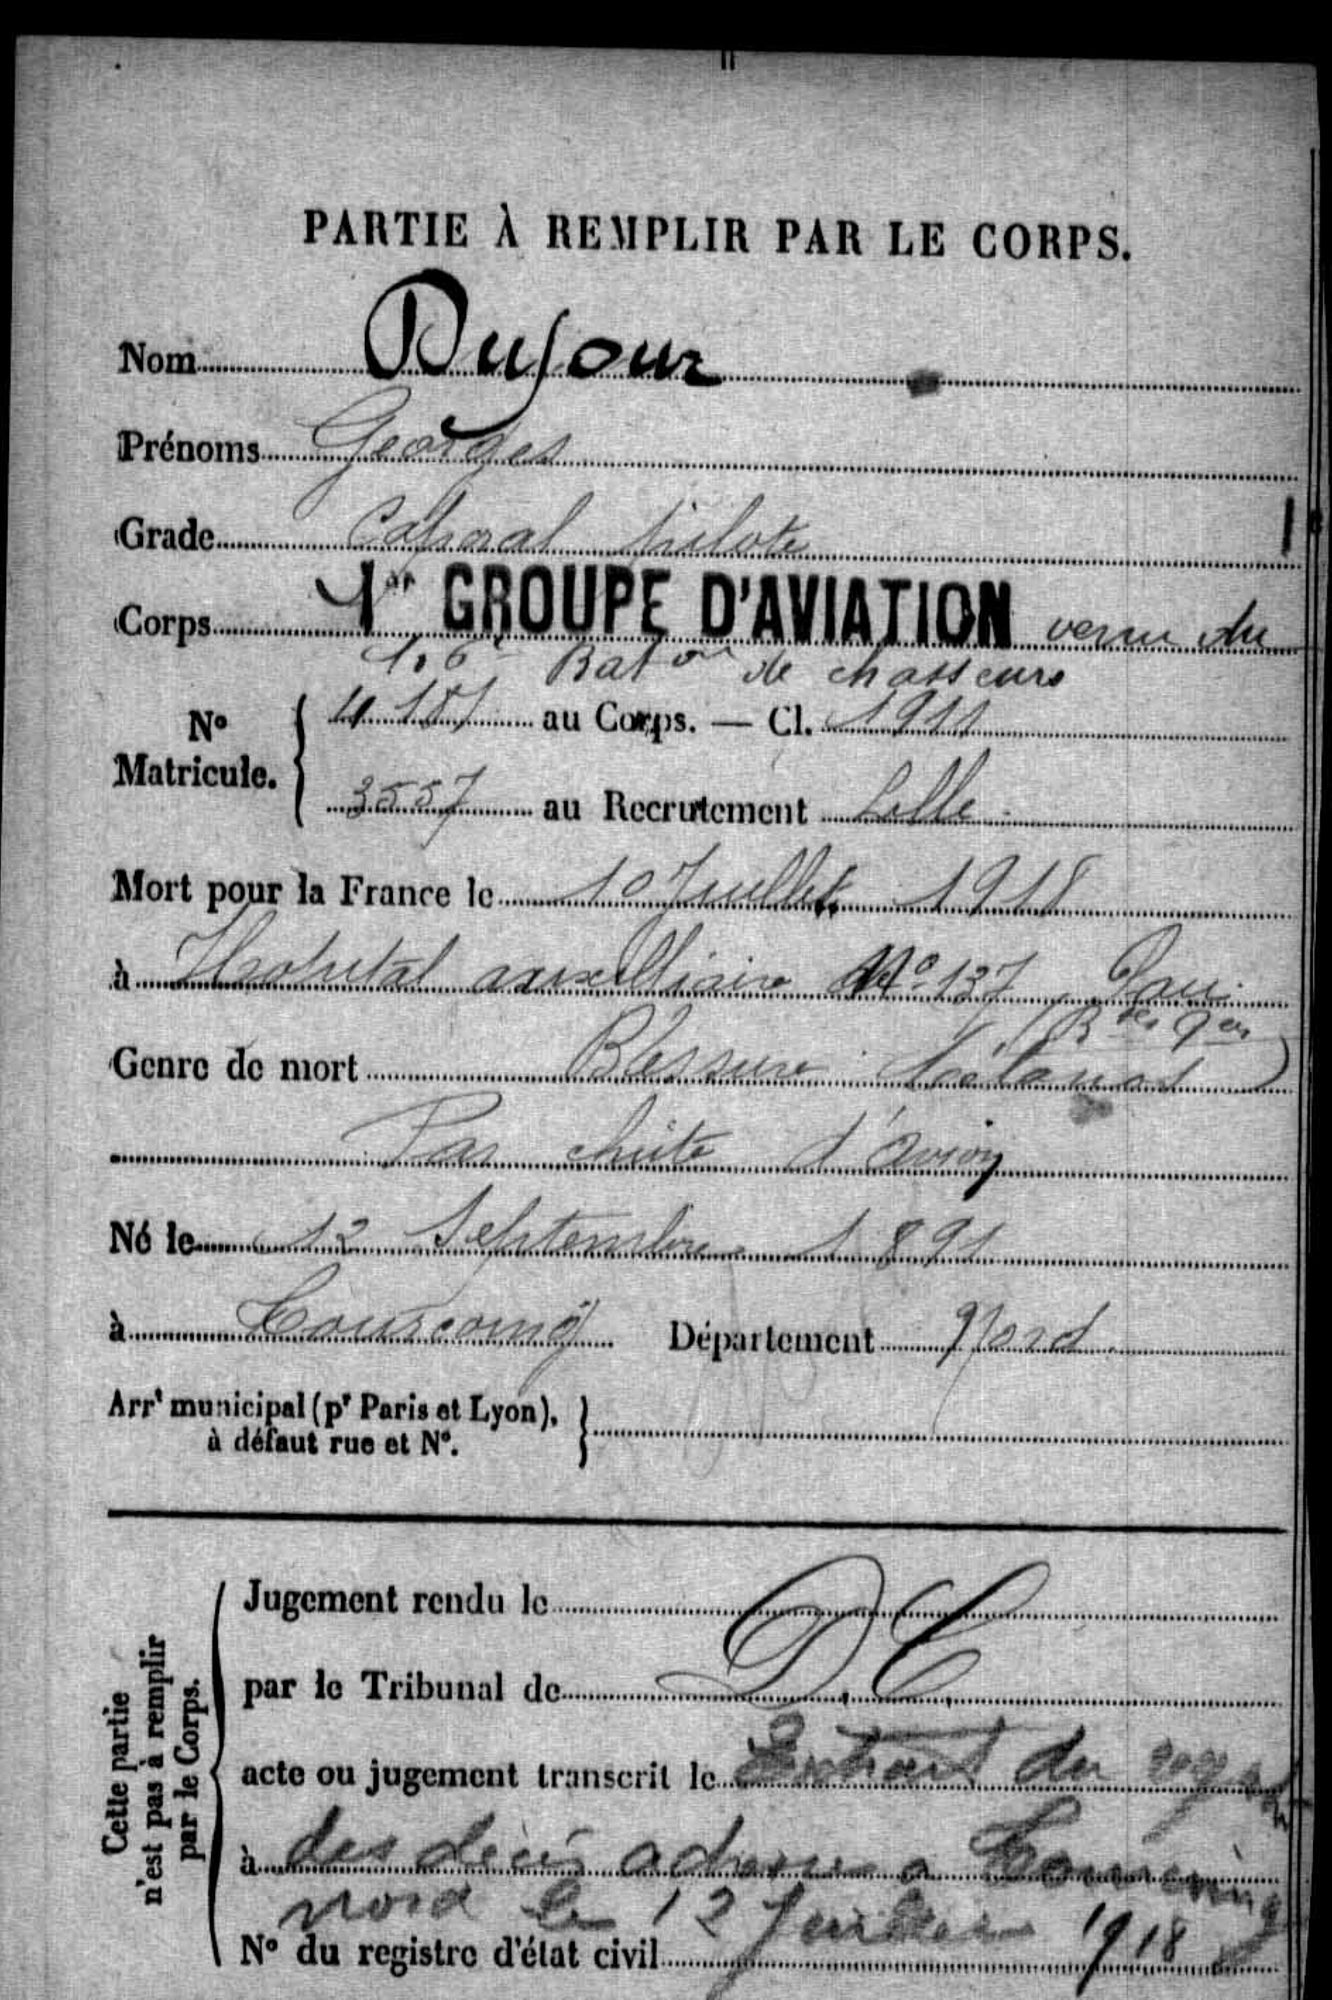 PARTIE À REMPLIR PAR LE CORPS.
Nom Dujour
Prénoms Georges
Grade Caporal pilote
Corps 1er GROUPE D'AVIATION venu du
16e Baton de chasseurs
No Matricule. 4187 au Corps. — Cl. 1911
3557 au Recrutement Lille
Mort pour la France le 10 Juillet 1918
à Hopital auxilliaire No 137 Pau
Genre de mort Blessure
Par chute d'avion
Né le 12 Septembre 1891
à Tourcoing Département Nord
Arrt municipal (pr Paris et Lyon),
à défaut rue et No.
Cette partie
n'est pas à remplir
par le Corps.
Jugement rendu le
par le Tribunal de D.C.
acte ou jugement transcrit le Extrait du
à des décès adressé a Tourcoing
Nord le 12 Juillet 1918
No du registre d'état civil